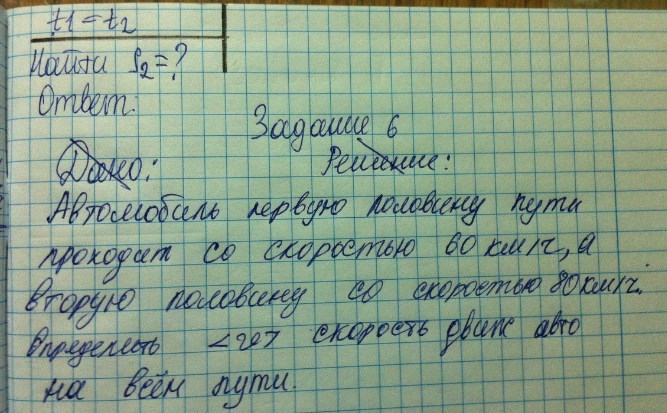 t1 = t2
Найти S2 = ?
Ответ:
Задание 6
Дано: Решение:
Автомобиль первую половину пути
проходит со скоростью 60 км/ч, а
вторую половину со скоростью 80 км/ч.
Определить <υ> скорость движ авто
на всём пути.